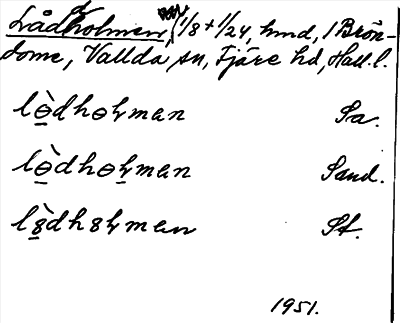 Lådholmen, 1/8 + 1/24, hmd, / Brön-
dome, Vallda sn, Fjäre hd, Hall. l.
lɵ̠̀dhɵɫman Sa.
lɵ̠̀dhɵɫman Sand.
lȣ̠̀dhȣɫman St.
1951.